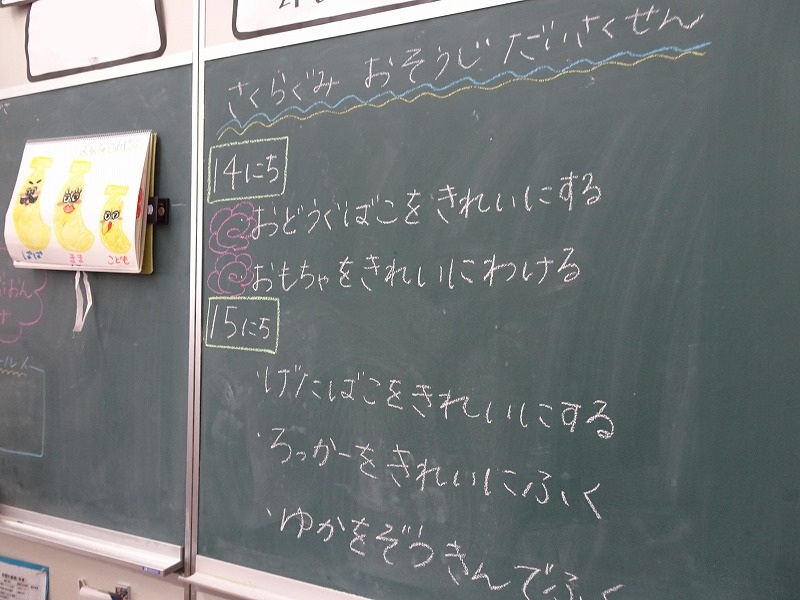 さくらぐみ おそうじ だいさくせん
14にち
おどうぐばこをきれいにする
おもちゃをきれいにわける
15にち
・げたばこをきれいにする
・ろっかーをきれいにふく
・ゆかをぞうきんでふく
ぱぱ
まま
こども